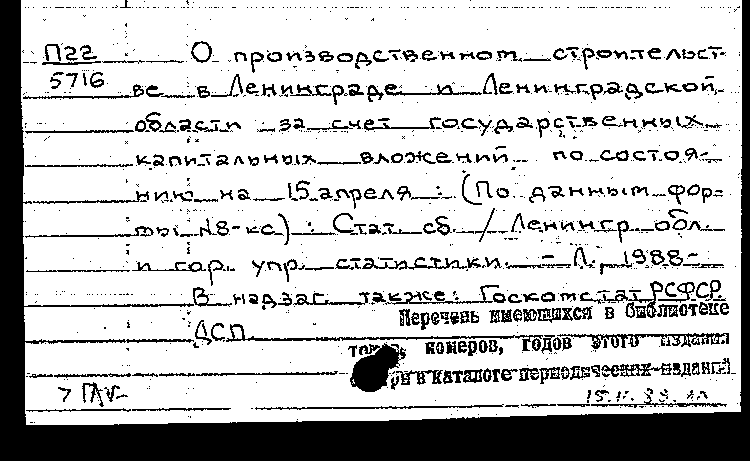 П22
5716
О производственном строительст-
ве в Ленинграде и Ленинградской
области за счет государственных
капитальных вложений по состоя-
нию на 15 апреля : (По данным фор-
мы N8-кс) : Стат. сб. / Ленингр. обл.
и гор. упр. статистики. - Л., 1988-
В надзаг. также: Госкомстат РСФСР.
ДСП
Перечень имеющихся в библиотеке
номеров, годов этого издания
в каталоге периодических изданий